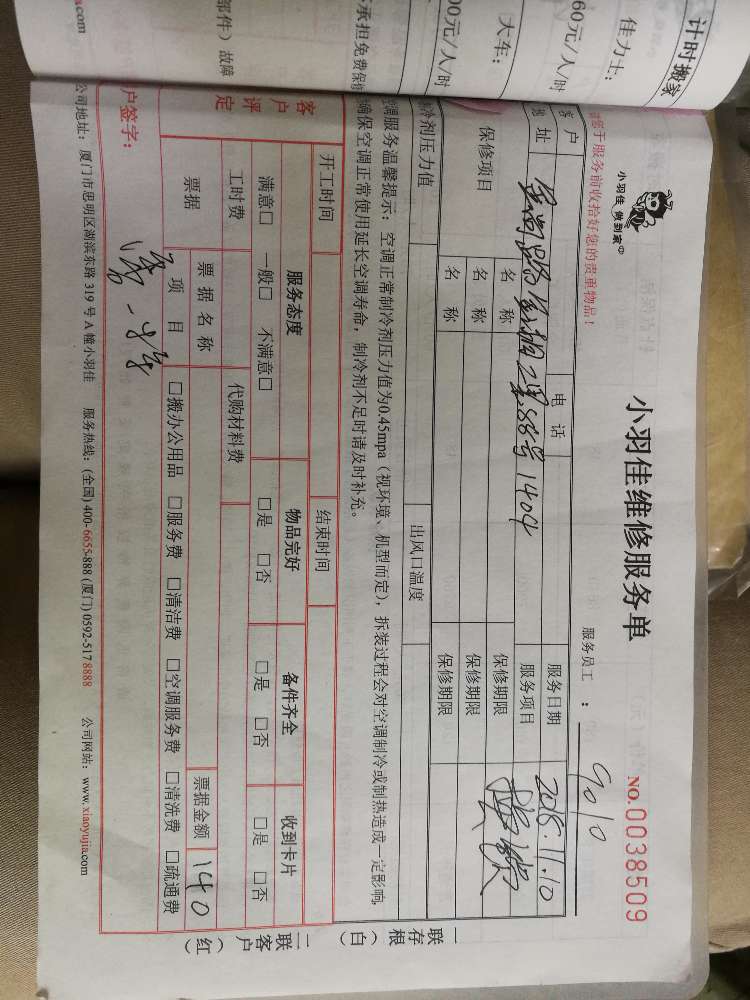 计时搬家
佳力士：
60元/人/时
大车：
00元/人/时
承担免费保
部件）故障
.com
小羽佳 做到家
小羽佳维修服务单
NO.0038509
于服务前收拾好您的贵重物品！
服务员工：
9010
客户地址
金尚路
88号1404
电话
服务日期
2018.11.10
服务项目
保修项目
名称
保修期限
名称
保修期限
名称
保修期限
制冷剂压力值
出风口温度
空调服务温馨提示：空调正常制冷剂压力值为0.45mpa（视环境、机型而定），拆装过程会对空调制冷或制热造成一定影响，
确保空调正常使用延长空调寿命，制冷剂不足时请及时补充。
开工时间
结束时间
客户评定
服务态度
物品完好
备件齐全
收到卡片
满意□ 一般□ 不满意□
□是 □否
□是 □否
工时费
代购材料费
票据
票据名称
票据金额
140
项目
□搬办公用品 □服务费 □清洁费 □空调服务费 □清洗费 □疏通费
户签字：
公司地址：厦门市思明区湖滨东路 319 号 A 幢小羽佳 服务热线：(全国) 400-6655-888 (厦门) 0592-517 8888 公司网站：www.xiaoyujia.com
一联存根（白）
二联客户（红）